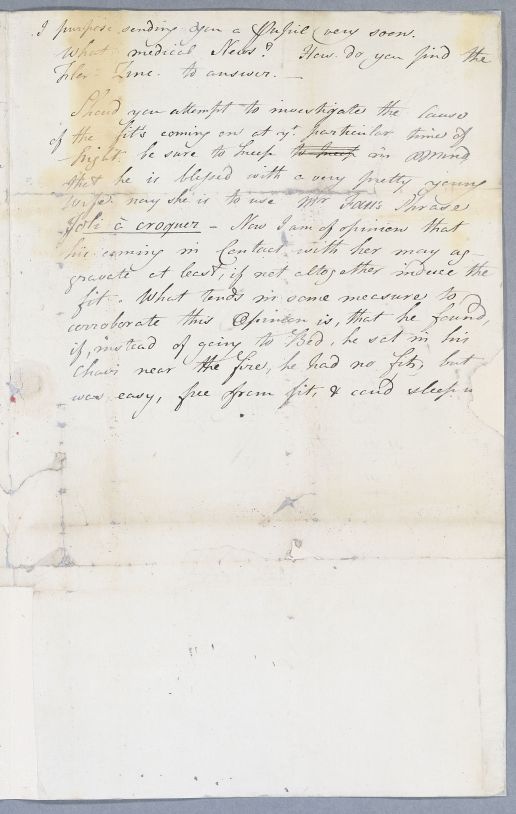 I purpose sending you a Pupil very soon.
What medical News? How do you find the
Zinc. to answer. —
Should you attempt to investigate the Cause
of the fit's coming on at yt. particular time of
Night. be sure to keep to keep in mind
that he is blessed with a very pretty young
wife. nay she is to use Mr Phrase
Joli à croquer – Now I am of opinion that
his coming in Contact with her may ag-
gravate at least, if not altogether induce the
fit. What tends in some measure to
corroborate this Opinion is, that he found,
if, instead of going to Bed, he sat in his
Chair near the fire, he had no fit, but
was easy, free from fit, & coud sleep